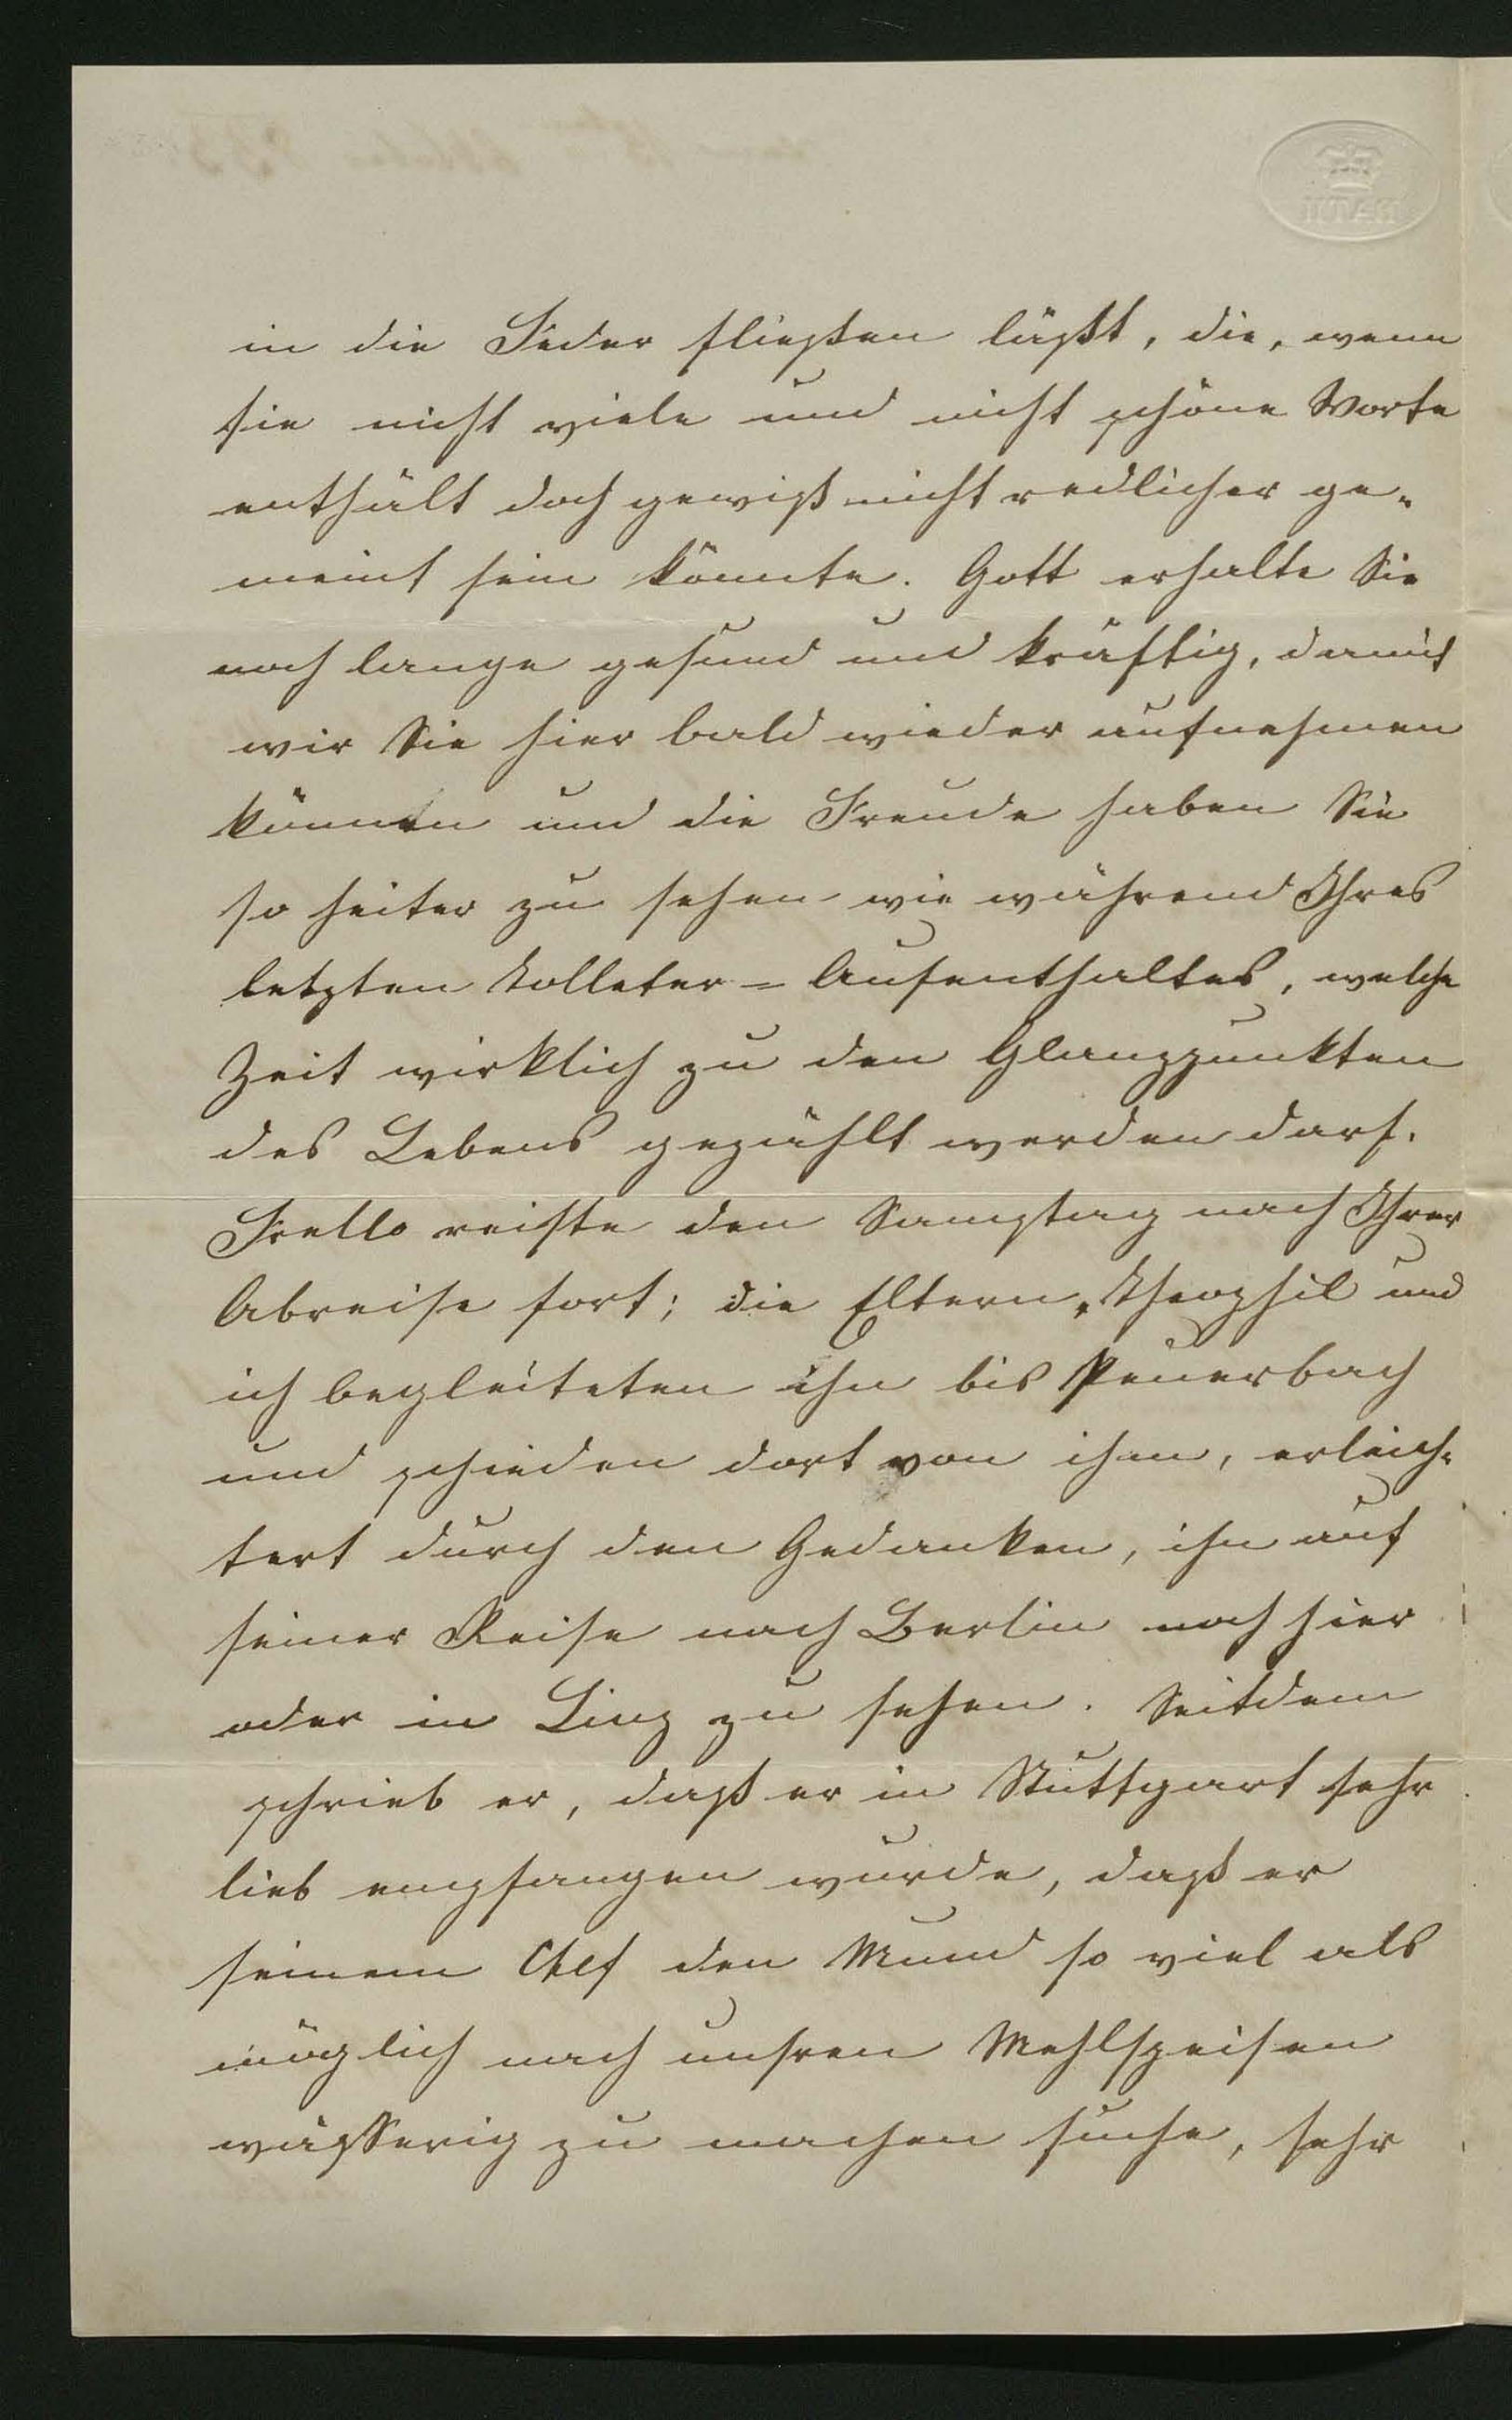 in die Feder fließen läßt, die, wenn
sie nicht viele und nicht schöne Worte
enthält doch gewiß nicht redlicher ge-
meint sein könnte. Gott erhalte Sie
noch lange gesund und kräftig, damit
wir Sie hier bald wieder aufnehmen
können und die Freude haben Sie
so heiter zu sehen wie während Ihres
letzten Tolleter-Aufenthaltes, welche
Zeit wirklich zu den Glanzpunkten
des Lebens gezählt werden darf.
reiste den Samstag nach Ihrer
Abreise fort; die Eltern, Theophil und
ich begleiteten ihn bis Peuerbach
und schieden dort von ihm, erleich-
tert durch den Gedanken, ihn auf
seiner Reise nach Berlin noch hier
oder in Linz zu sehen. Seitdem
schrieb er, daß er in Stuttgart sehr
lieb empfangen wurde, daß er
seinem Chef den Mund so viel als
möglich nach unsren Mehlspeisen
wässerig zu machen suche, sehr